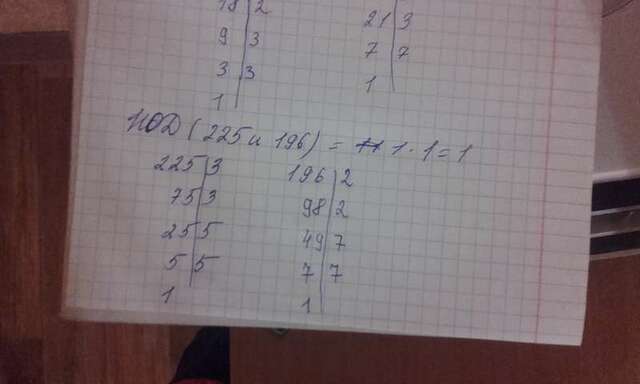 18 | 2
9 | 3
3 | 3
1
21 | 3
7 | 7
1
НОД (225 и 196) = 1 · 1 = 1
225 | 3
75 | 3
25 | 5
5 | 5
1
196 | 2
98 | 2
49 | 7
7 | 7
1